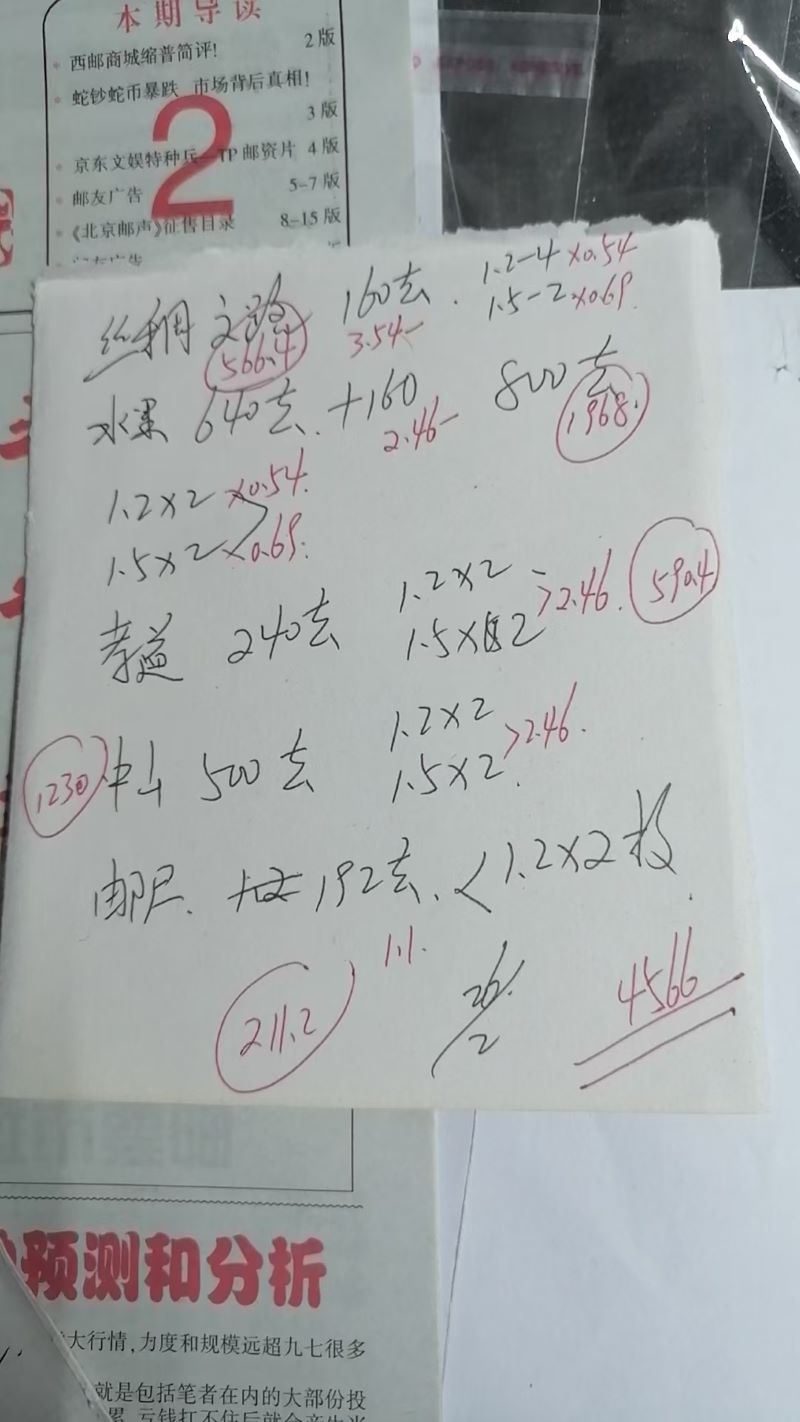 本期导读
西邮商城缩普简评! 2版
蛇钞蛇币暴跌 市场背后真相!
3版
2
京东文娱特种兵—TP邮资片 4版
邮友广告 5-7版
《北京邮声》征售目录 8-15版
丝稠之路 160套. 1.2-4 ×0.54
566.4 3.54- 1.5-2 ×0.69.
水果 640套. +160 800套
2.46- 1968.
1.2×2 ×0.54.
1.5×2 ×0.69.
孝益 240套 1.2×2 >2.46. 590.4
1.5×2
1230 中山 500套 1.2×2 >2.46.
1.5×2.
邮尺. 192套. <1.2×2枚.
1.1.
211.2 26/2 4566
预测和分析
大行情,力度和规模远超九七很多
就是包括笔者在内的大部份投
累,亏钱扛不住后就会产生